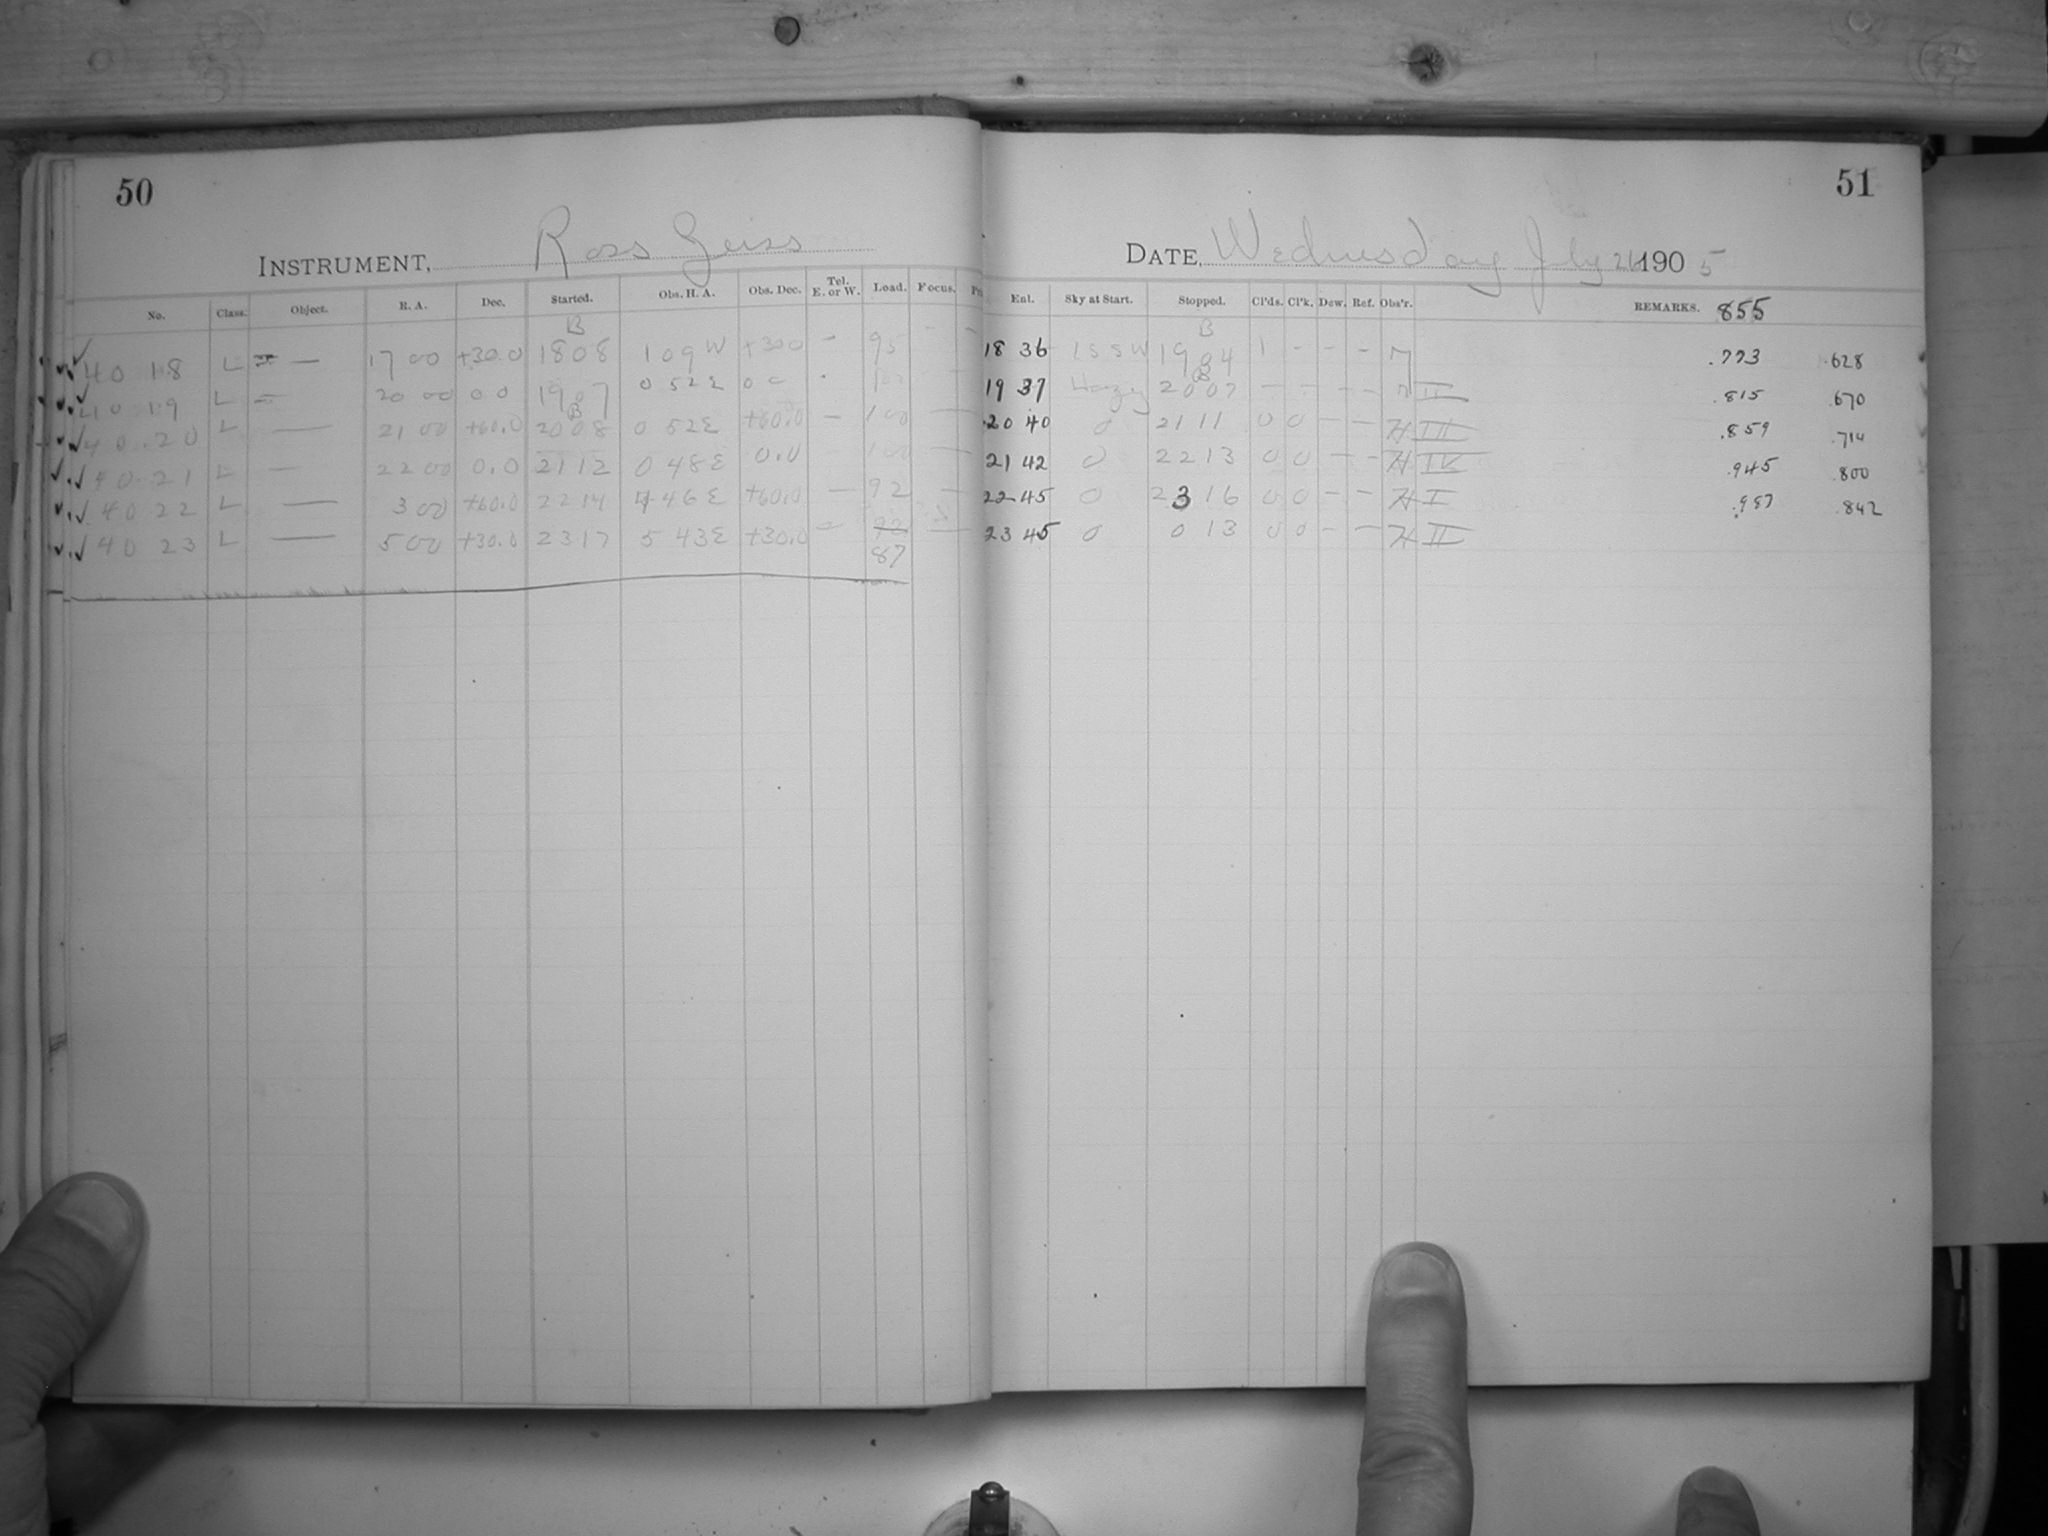 50
INSTRUMENT, Ross Zeiss
No. Class. Object. R. A. Dec. Started. Obs. H. A. Obs. Dec. Tel. E. or W. Load. Focus.
B
40 18 L — 17 00 +30.0 18 08 1 09 W +30.0 – 95 –
40 19 L – 20 00 0 0 19 07 0 52 E 0 0
B
40 20 L — 21 00 +60.0 20 08 0 52 E +60.0 – 100 —
40 21 L — 22 00 0.0 21 12 0 48 E 0.0 100
40 22 L — 3 00 +60.0 22 14 4 46 E +60.0 — 92 —
40 23 L — 5 00 +30.0 23 17 5 43 E +30.0 – 92 —
87
51
DATE, Wednesday July 26 1905
Enl. Sky at Start. Stopped. Cl'ds. Cl'k. Dew. Ref. Obs'r. REMARKS. 855
B
18 36 1 S S W 19 04 1 – – – .773 .628
B
19 37 Hazy 20 07 – – – – II .815 .670
20 40 0 21 11 0 0 – – H III .859 .714
21 42 0 22 13 0 0 – – H IV .945 .800
22 45 0 23 16 0 0 – – H I .987 .842
23 45 0 0 13 0 0 – – H II